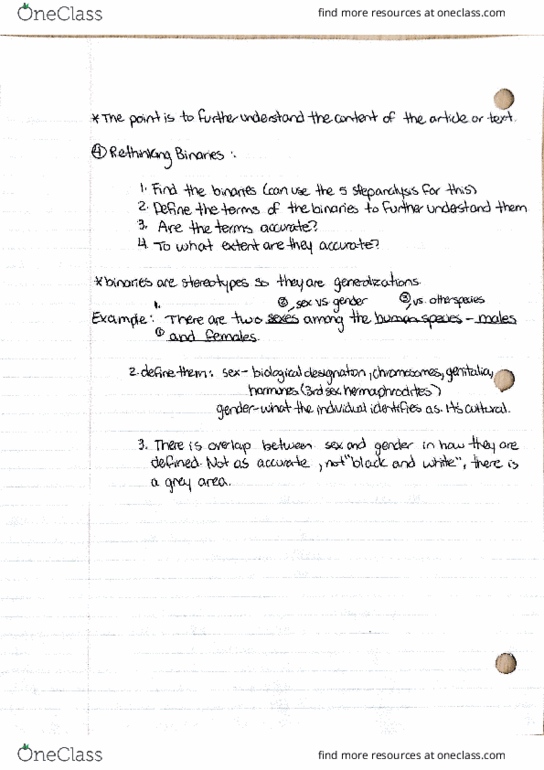 OneClass
find more resources at oneclass.com
*The point is to further understand the content of the article or text.
④ Rethinking Binaries :.
1. Find the binaries (can use the 5 step analysis for this)
2. Define the terms of the binaries to further understand them
3. Are the terms accurate?
4. To what extent are they accurate?
*binaries are stereotypes so they are generalizations.
1.
② sex vs. gender
③ vs. other species
Example: There are two sexes among the human species - males
① and females.
2. define them: sex - biological designation, chromosomes, genitalia,
hormones (3rd sex hermaphrodites)
gender - what the individual identifies as. It's cultural.
3. There is overlap between sex and gender in how they are
defined. Not as accurate, not "black and white", there is
a grey area.
OneClass
find more resources at oneclass.com